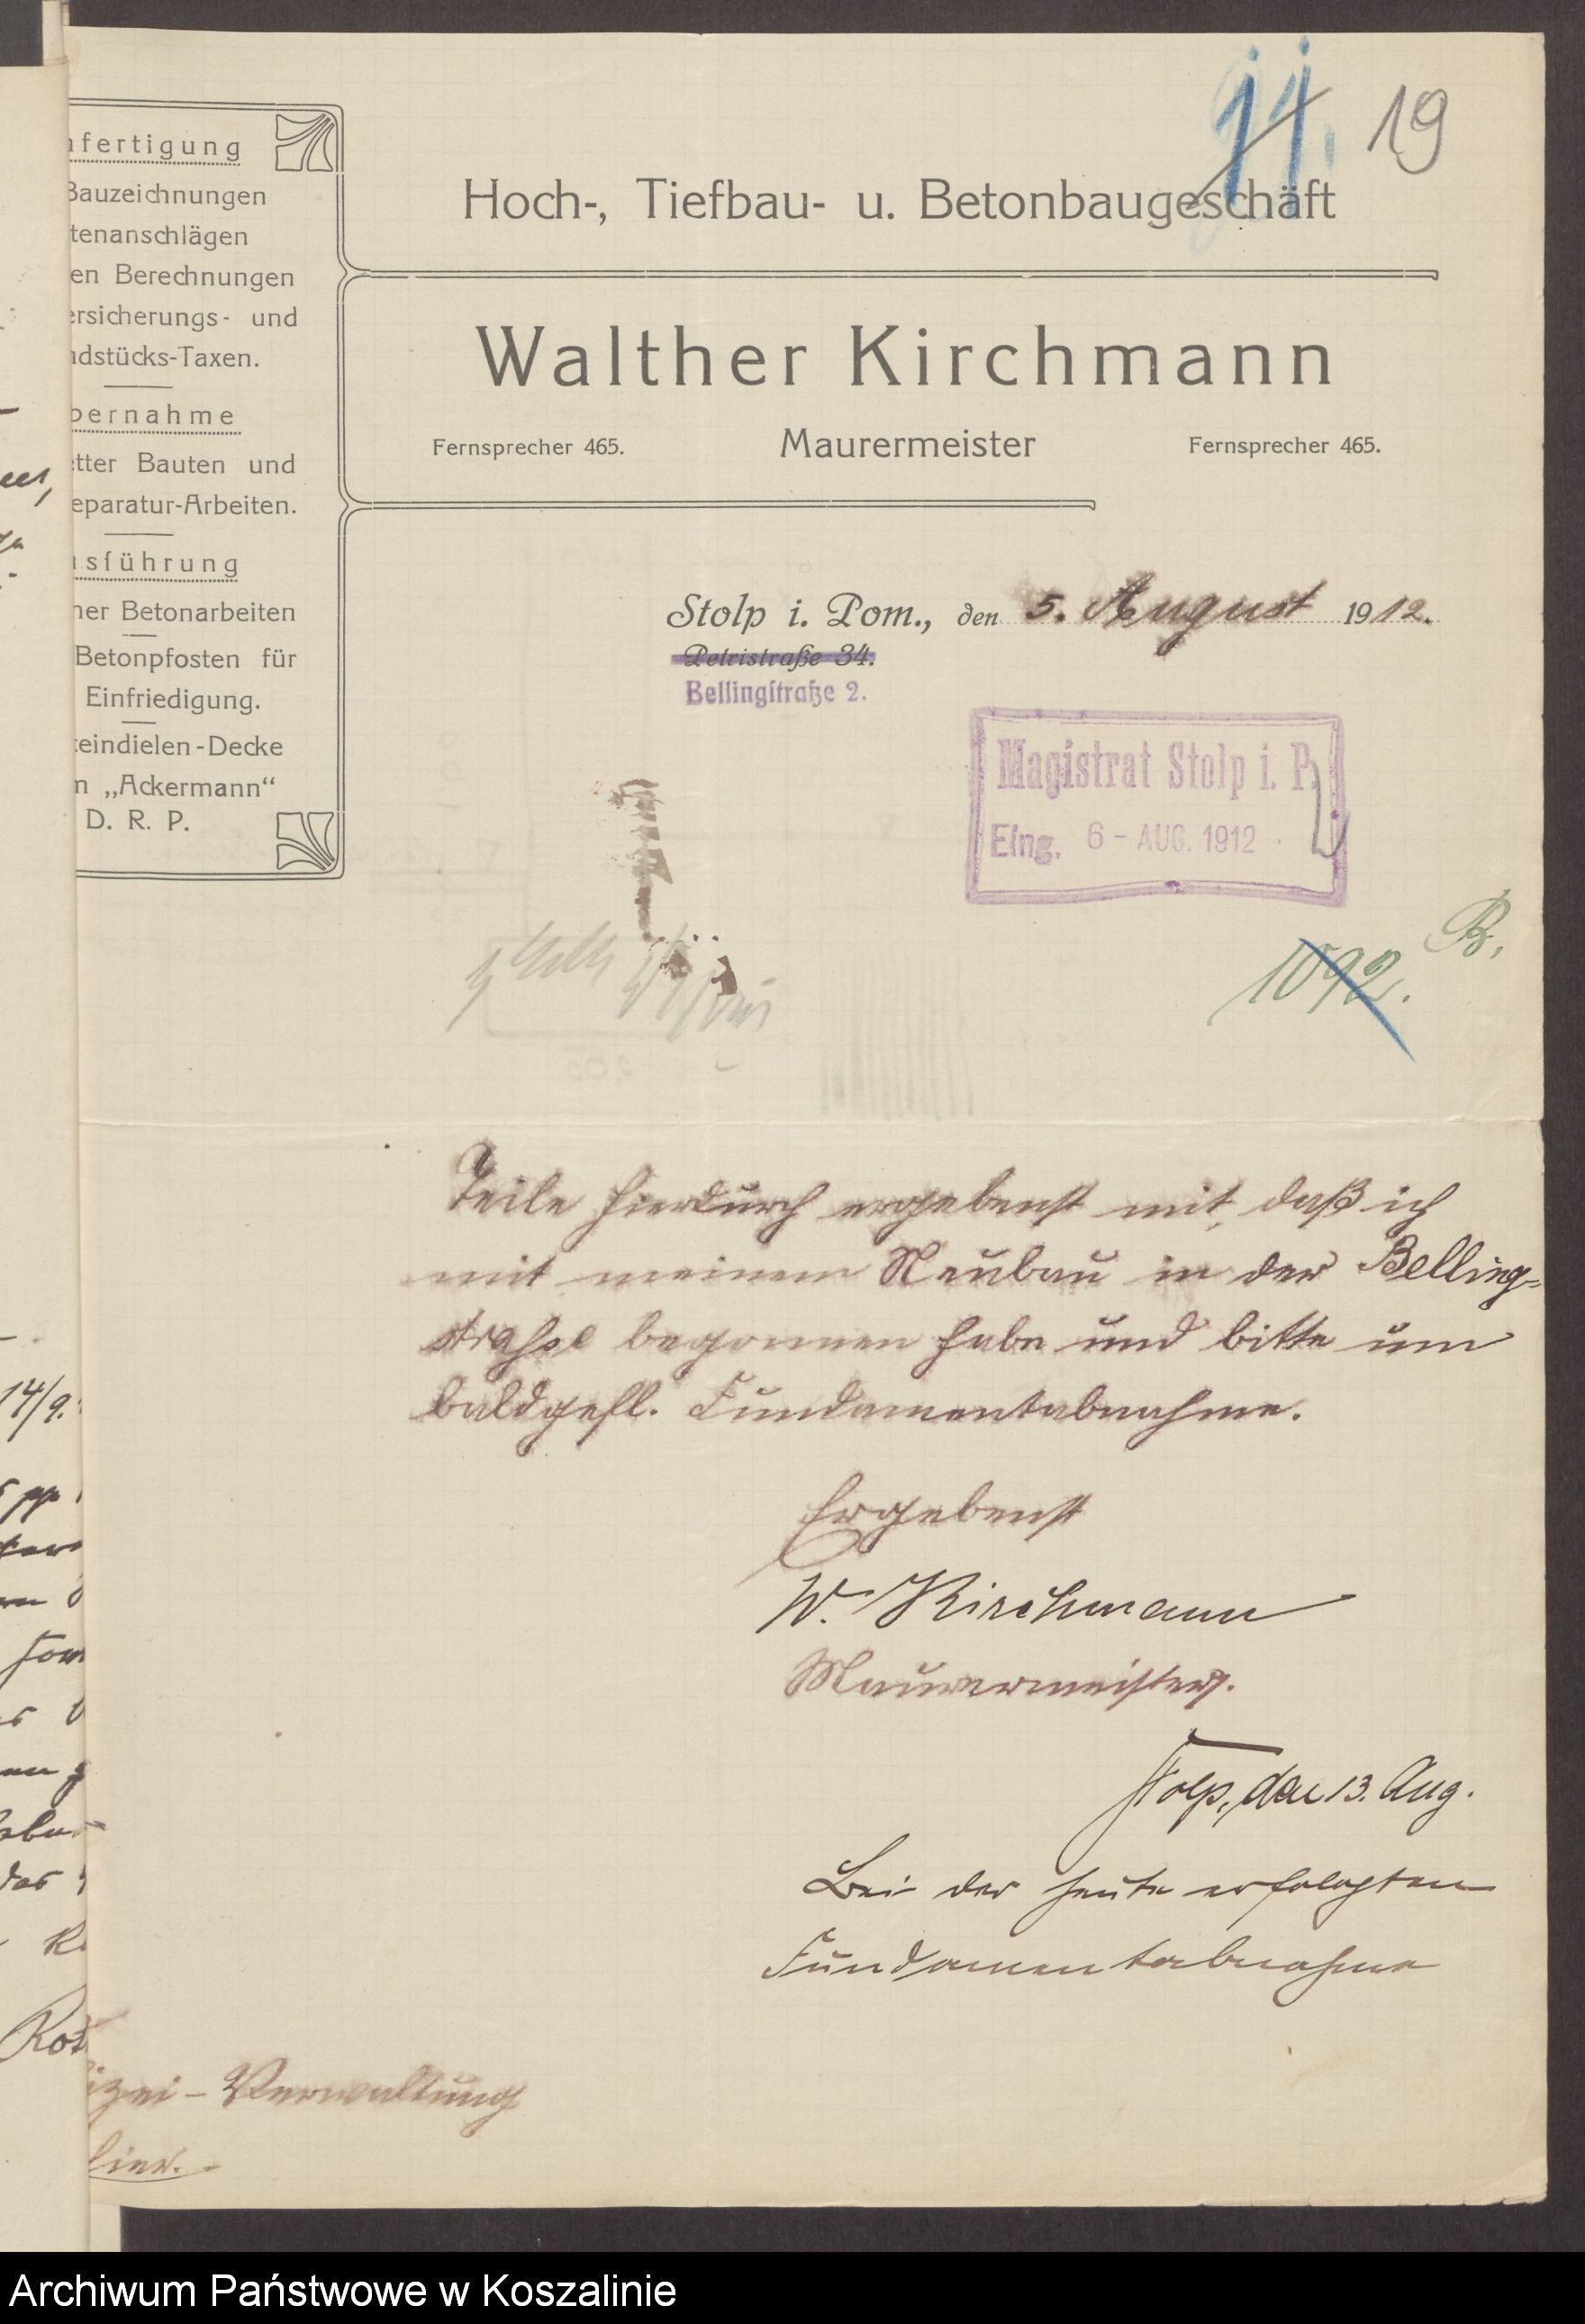 19
nfertigung
Bauzeichnungen
tenanschlägen
en Berechnungen
ersicherungs- und
ndstücks-Taxen.
bernahme
etter Bauten und
eparatur-Arbeiten.
usführung
her Betonarbeiten
Betonpfosten für
Einfriedigung.
teindielen-Decke
m „Ackermann“
D. R. P.
Hoch-, Tiefbau- u. Betonbaugeschäft
Walther Kirchmann
Fernsprecher 465. Maurermeister Fernsprecher 465.
Stolp i. Pom., den 5. August 1912.
Petristraße 34.
Bellingstraße 2.
Magistrat Stolp i. P.
Eing. 6 - AUG. 1912
B.
1092.
Teile hierdurch ergebenst mit, daß ich
mit meinem Neubau in der Belling-
strahse begonnen habe und bitte um
baldgefl. Fundamentabnahme.
Ergebenst
W. Kirchmann
Maurermeister.
Stolp, den 13. Aug.
Bei der heute erfolgten
Fundamentabnahme
izei-Verwaltung
hier.
14/9.
Archiwum Państwowe w Koszalinie